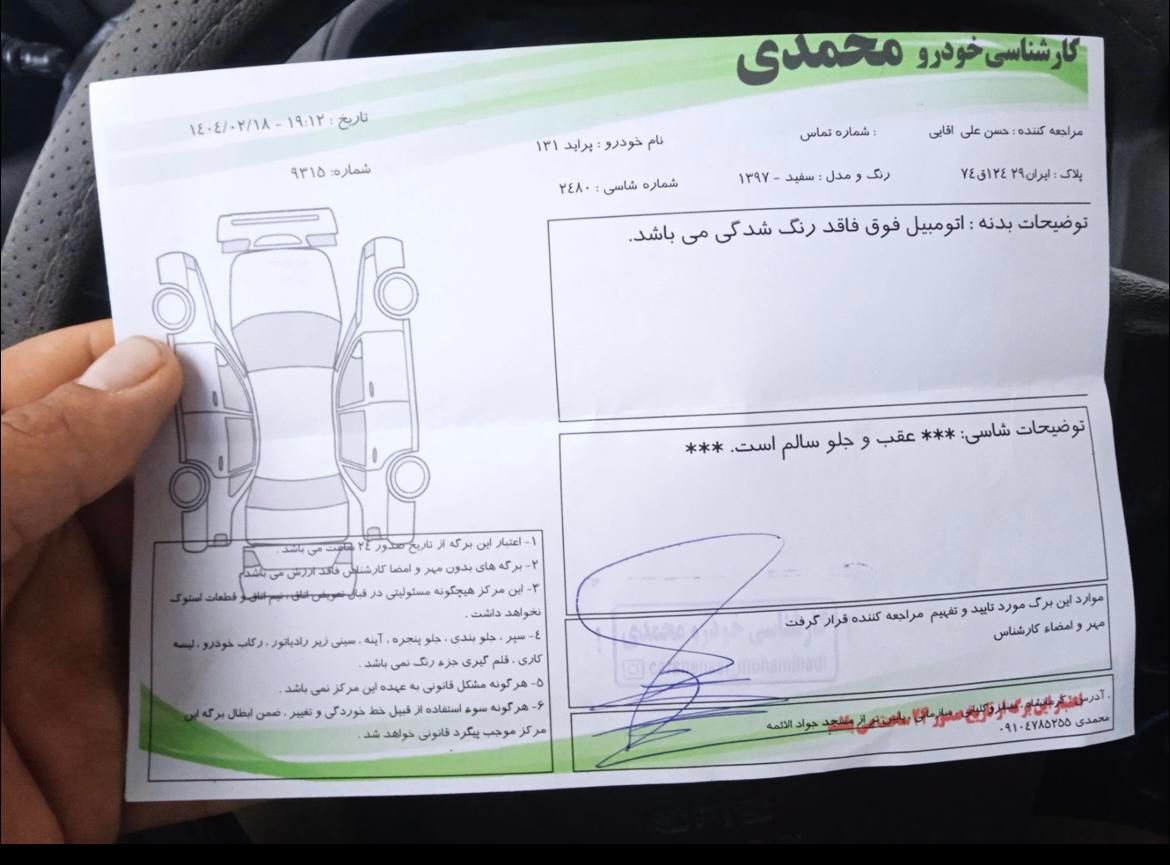 کارشناسی خودرو محمدی
تاریخ : ۱۹:۱۲ - ۱٤۰٤/۰۲/۱۸
شماره: ۹۳۱۵
مراجعه کننده : حسن علی اقایی
شماره تماس :
نام خودرو : پراید ۱۳۱
پلاک : ایران۲۹ ۱۲٤ق۷٤
رنگ و مدل : سفید - ۱۳۹۷
شماره شاسی : ۲٤۸۰
توضیحات بدنه : اتومبیل فوق فاقد رنگ شدگی می باشد.
توضیحات شاسی: *** عقب و جلو سالم است. ***
موارد این برگ مورد تایید و تفهیم مراجعه کننده قرار گرفت
مهر و امضاء کارشناس
کارشناسی خودرو محمدی
آدرس : کرمانشاه
مسجد جواد الائمه
محمدی ۰۹۱۰٤۷۸۵۲۵۵
۱- اعتبار این برگه از تاریخ صدور ۲٤ ساعت می باشد .
۲- برگه های بدون مهر و امضا کارشناس فاقد ارزش می باشد
۳- این مرکز هیچگونه مسئولیتی در قبال تعویض اتاق ، نیم اتاق و قطعات استوک
نخواهد داشت .
٤- سپر ، جلو بندی ، جلو پنجره ، آینه ، سینی زیر رادیاتور ، رکاب خودرو ، لیسه
کاری ، قلم گیری جزء رنگ نمی باشد .
۵- هر گونه مشکل قانونی به عهده این مرکز نمی باشد .
۶- هر گونه سوء استفاده از قبیل خط خوردگی و تغییر ، ضمن ابطال برگه این
مرکز موجب پیگرد قانونی خواهد شد .